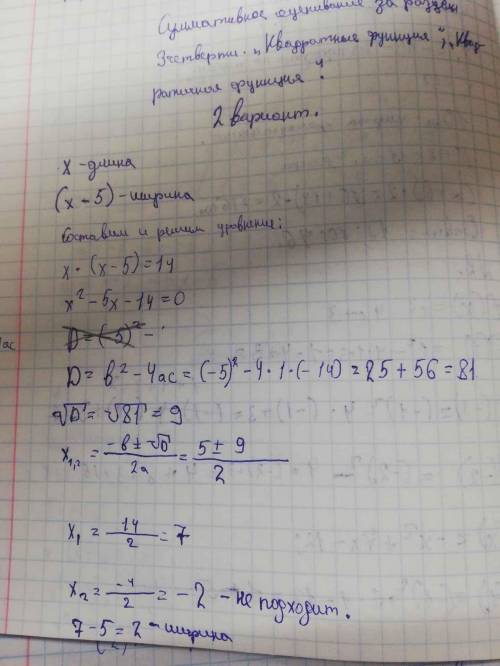 Суммативное оценивание за раздел
3 четверти. „Квадратные функция“, „Квад
ратичная функция“.
2 вариант.
x - длина
(x - 5) - ширина
Составим и решим уровнение:
x · (x - 5) = 14
x² - 5x - 14 = 0
D = (-5)² -
D = b² - 4ac = (-5)² - 4 · 1 · (-14) = 25 + 56 = 81
√D = √81 = 9
x₁,₂ = (-b ± √D)/2a = (5 ± 9)/2
x₁ = 14/2 = 7
x₂ = -4/2 = -2 - не подходит.
7 - 5 = 2 - ширина